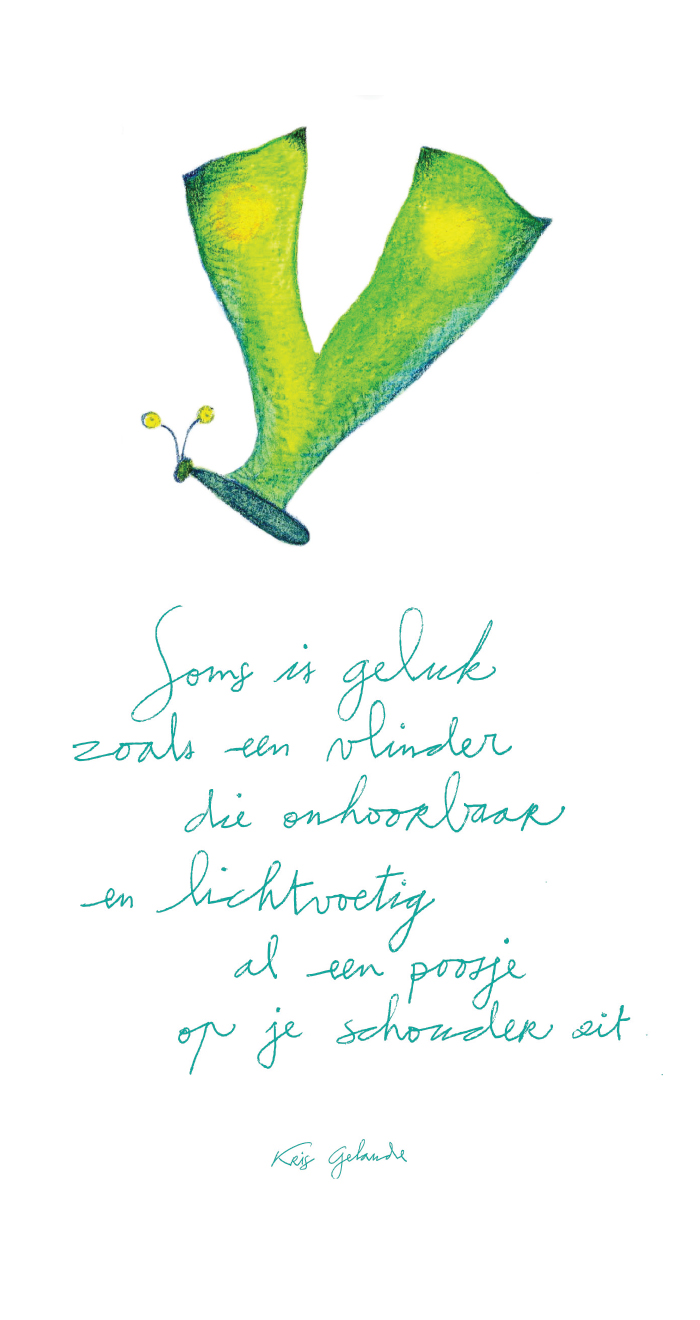 Soms is geluk
zoals een vlinder
die onhoorbaar
en lichtvoetig
al een poosje
op je schouder zit
Kris Gelaude